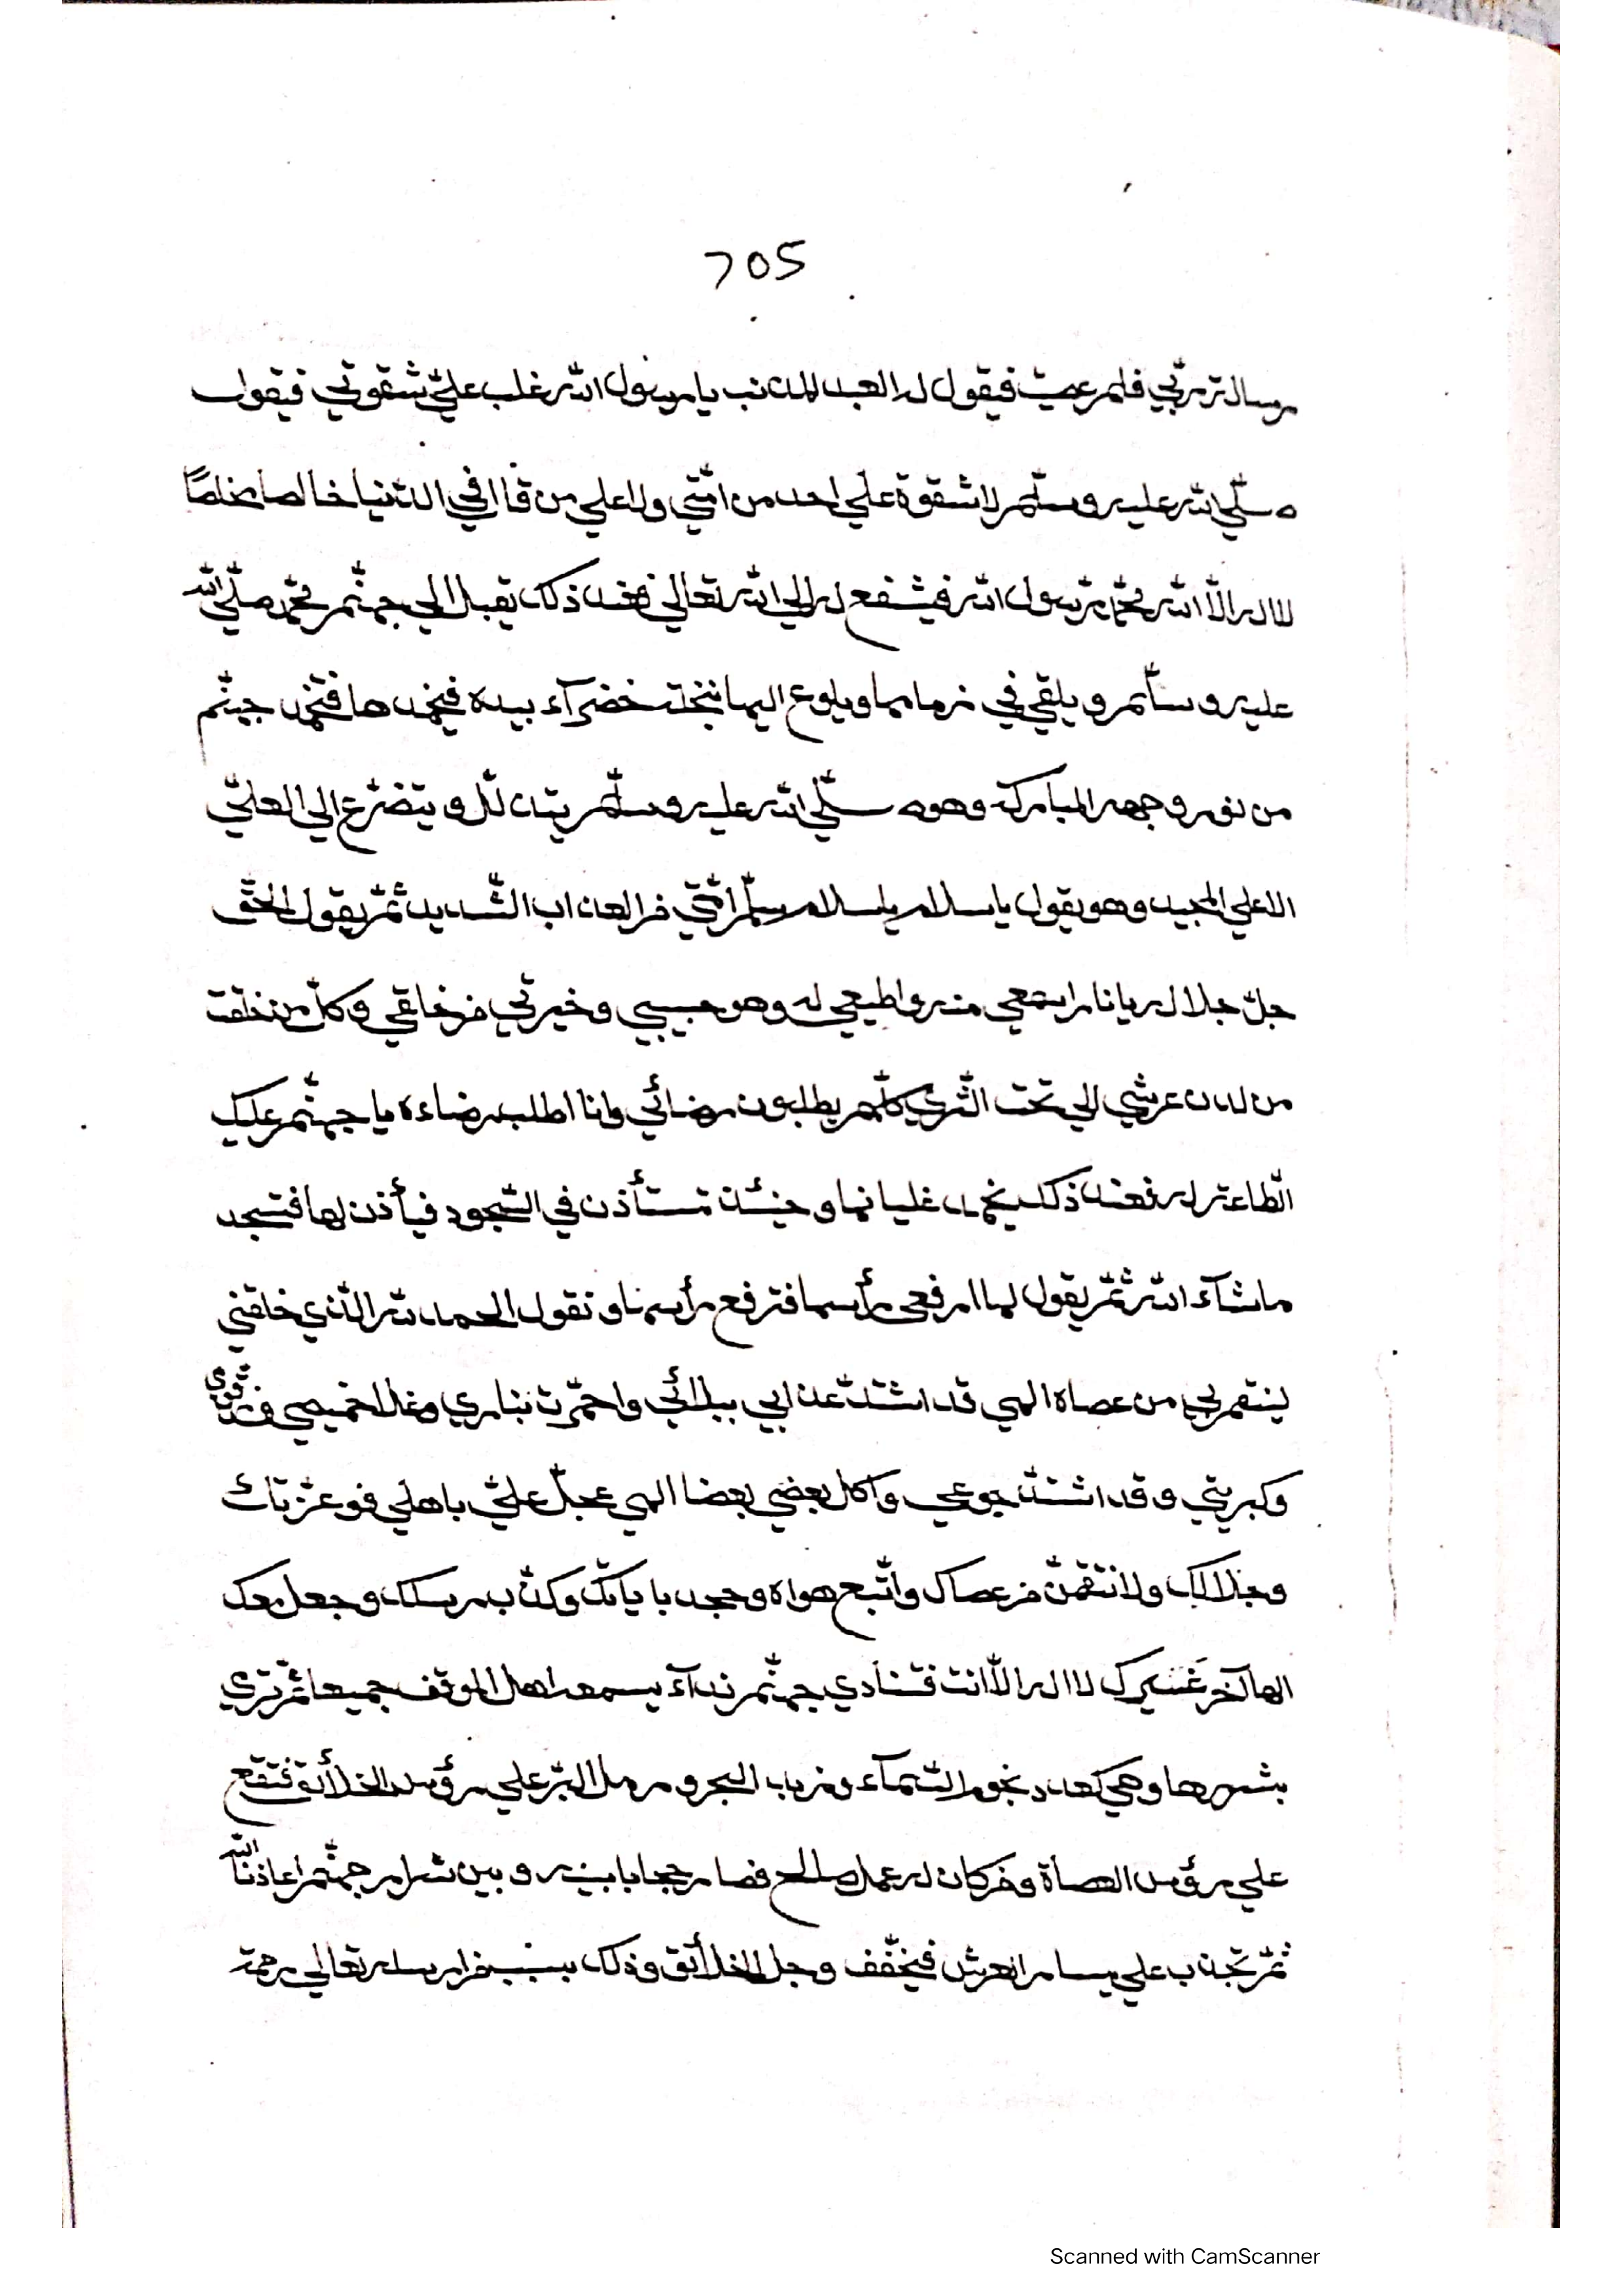 705
رسالة ربّي فلم عصيت فيقول له العبد المذنب يا رسول الله غلب عليّ شقوتي فيقول
صلّي الله عليه وسلّم لا شقوة علي احد من امّتي ولا علي من قال في الدّنيا خالصا مخلصًا
لا اله الّا الله محمّد رسول الله فيشفع له الي الله تعالي فعند ذلك يقبل الي جهنّم محمّد صلّي الله
عليه وسلّم ويلقي في زمامها ويلوع اليها بنخلة خضرآء بيده فيخمدها فتخمد جهنّم
من نور وجهه المباركة وهو صلّي الله عليه وسلّم يتذلّل ويتضرّع الي العليّ
الاعلي المجيد وهو يقول يا سلام يا سلام سلّم امّتي من العذاب الشّديد ثمّ يقول الحقّ
جلّ جلاله يا نار اسمعي منه واطيعي له وهو حبيبي وخيرتي من خلقي وكلّ من خلقت
من لدن عرشي الي تحت الثّري كلّهم يطلبون رضائي وانا اطلب رضاءه يا جهنّم عليك
الطّاعة له فعند ذلك يخمد غليانها وحينئذ تستأذن في السّجود فيأذن لها فتسجد
ما شآء الله ثمّ يقول لها ارفعي رأسها فترفع رأسها وتقول الحمد لله الّذي خلقني
لينتقم بي من عصاه الهي قد اشتدّ عذابي ببلائي واحمّرت بناري وغلا حميمي
وكبريتي وقد اشتدّ جوعي وآكل بعضي بعضا الهي عجّل عليّ باهلي فوعزّتك
وجلالك ولانتقمنّ من عصاك واتّبع هواه وجحد بآياتك وكذّب برسلك وجعل معك
الها آخر غيرك لا اله الّا انت فتنادي جهنّم ندآء يسمعه اهل الموقف جميعا ثمّ ترمي
بشررها وهي كعدد نجوم السّمآء وزباب البحر ورمل البرّ علي رؤس الخلائق فتقع
علي رؤس العصاة ومن كان له عمل صالح فصار حجابا بينه وبين شرار جهنّم اعاذنا الله
ثمّ تجذب علي يسار العرش فيخفّف وجل الخلائق وذلك بسبب من ارسله تعالي رحمة
Scanned with CamScanner